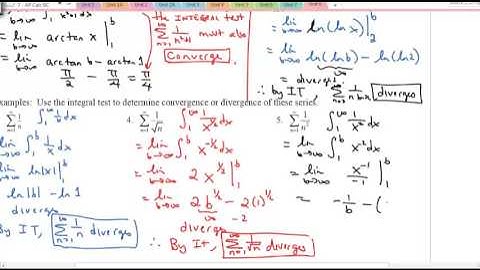 AP Calc BC
lim b→∞ arctan x |₁ᵇ
= lim b→∞ arctan b − arctan 1
π/2 − π/4 = π/4
the INTEGRAL test
∑ n=1 ∞ must also
Converge
= lim b→∞ ln(ln x) |₂ᵇ
= lim b→∞ ln(ln b) − ln(ln 2)
= diverges
∴ by IT, ∑ 1/(n ln n) diverges
Examples: Use the integral test to determine convergence or divergence of these series.
∑ n=1 ∞ 1/n ∫₁^∞ 1/x dx
lim b→∞ ∫₁ᵇ 1/x dx
lim b→∞ ln|x| |₁ᵇ
ln|b| − ln 1
diverges
By IT, ∑ n=1 ∞ 1/n diverges
4. ∑ n=1 ∞ 1/√n ∫₁^∞ 1/x^½ dx
= lim b→∞ ∫₁ᵇ x^-½ dx
= lim b→∞ 2 x^½ |₁ᵇ
= lim b→∞ 2b^½ − 2(1)^½
diverges −2
∴ By It, ∑ n=1 ∞ 1/√n diverges
5. ∑ n=1 ∞ 1/n² ∫₁^∞ 1/x² dx
= lim b→∞ ∫₁ᵇ x⁻² dx
= lim b→∞ x⁻¹/−1 |₁ᵇ
= −1/b − (